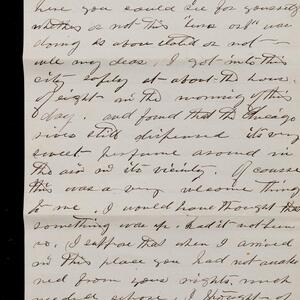 here you could see for yourself
whether or not this "time out" was
doing as above stated or not
well my dear, I got into this
city safely at about the hour
of eight in the morning of this
day. and found that the Chicago
river still dispensed its very
sweet perfume around in
the air in its vicinity. Of course
this was a very welcome thing
to me. I would have thought that
something was up. had it not been
so, I suppose that when I arrived
in this place you had not awake
ned from your nights, much
needed repose. I thought of